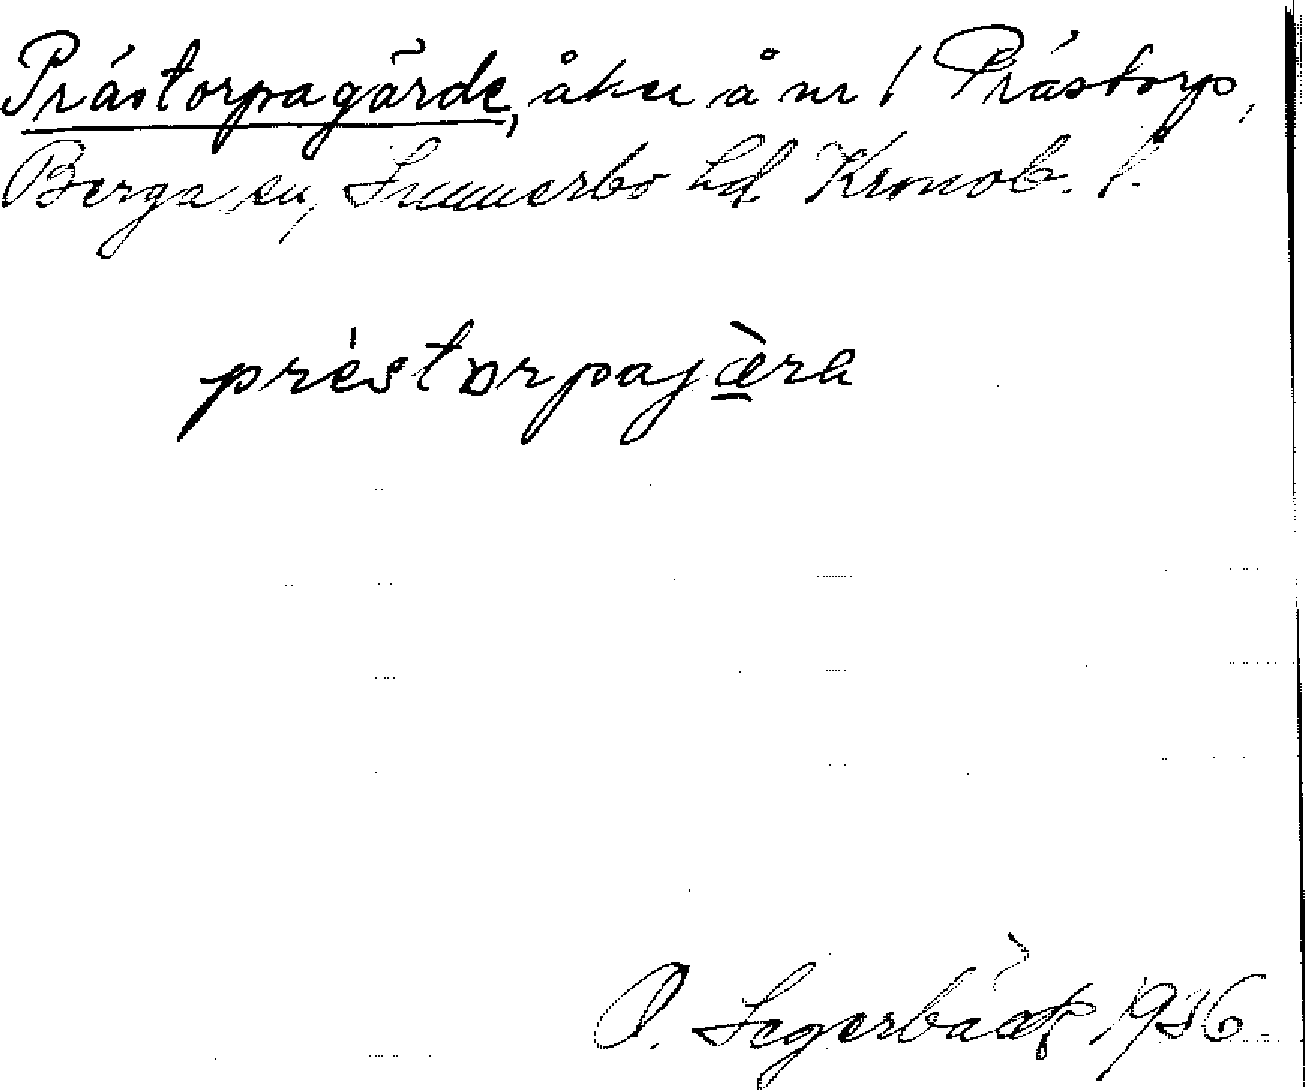 Prästorpagärde, åker å nr 1 Prästorp,
Berga sn, Sunnerbo hd Kronob. l.
prèstorpajæ̀ra
P. Segerbäck 1936.